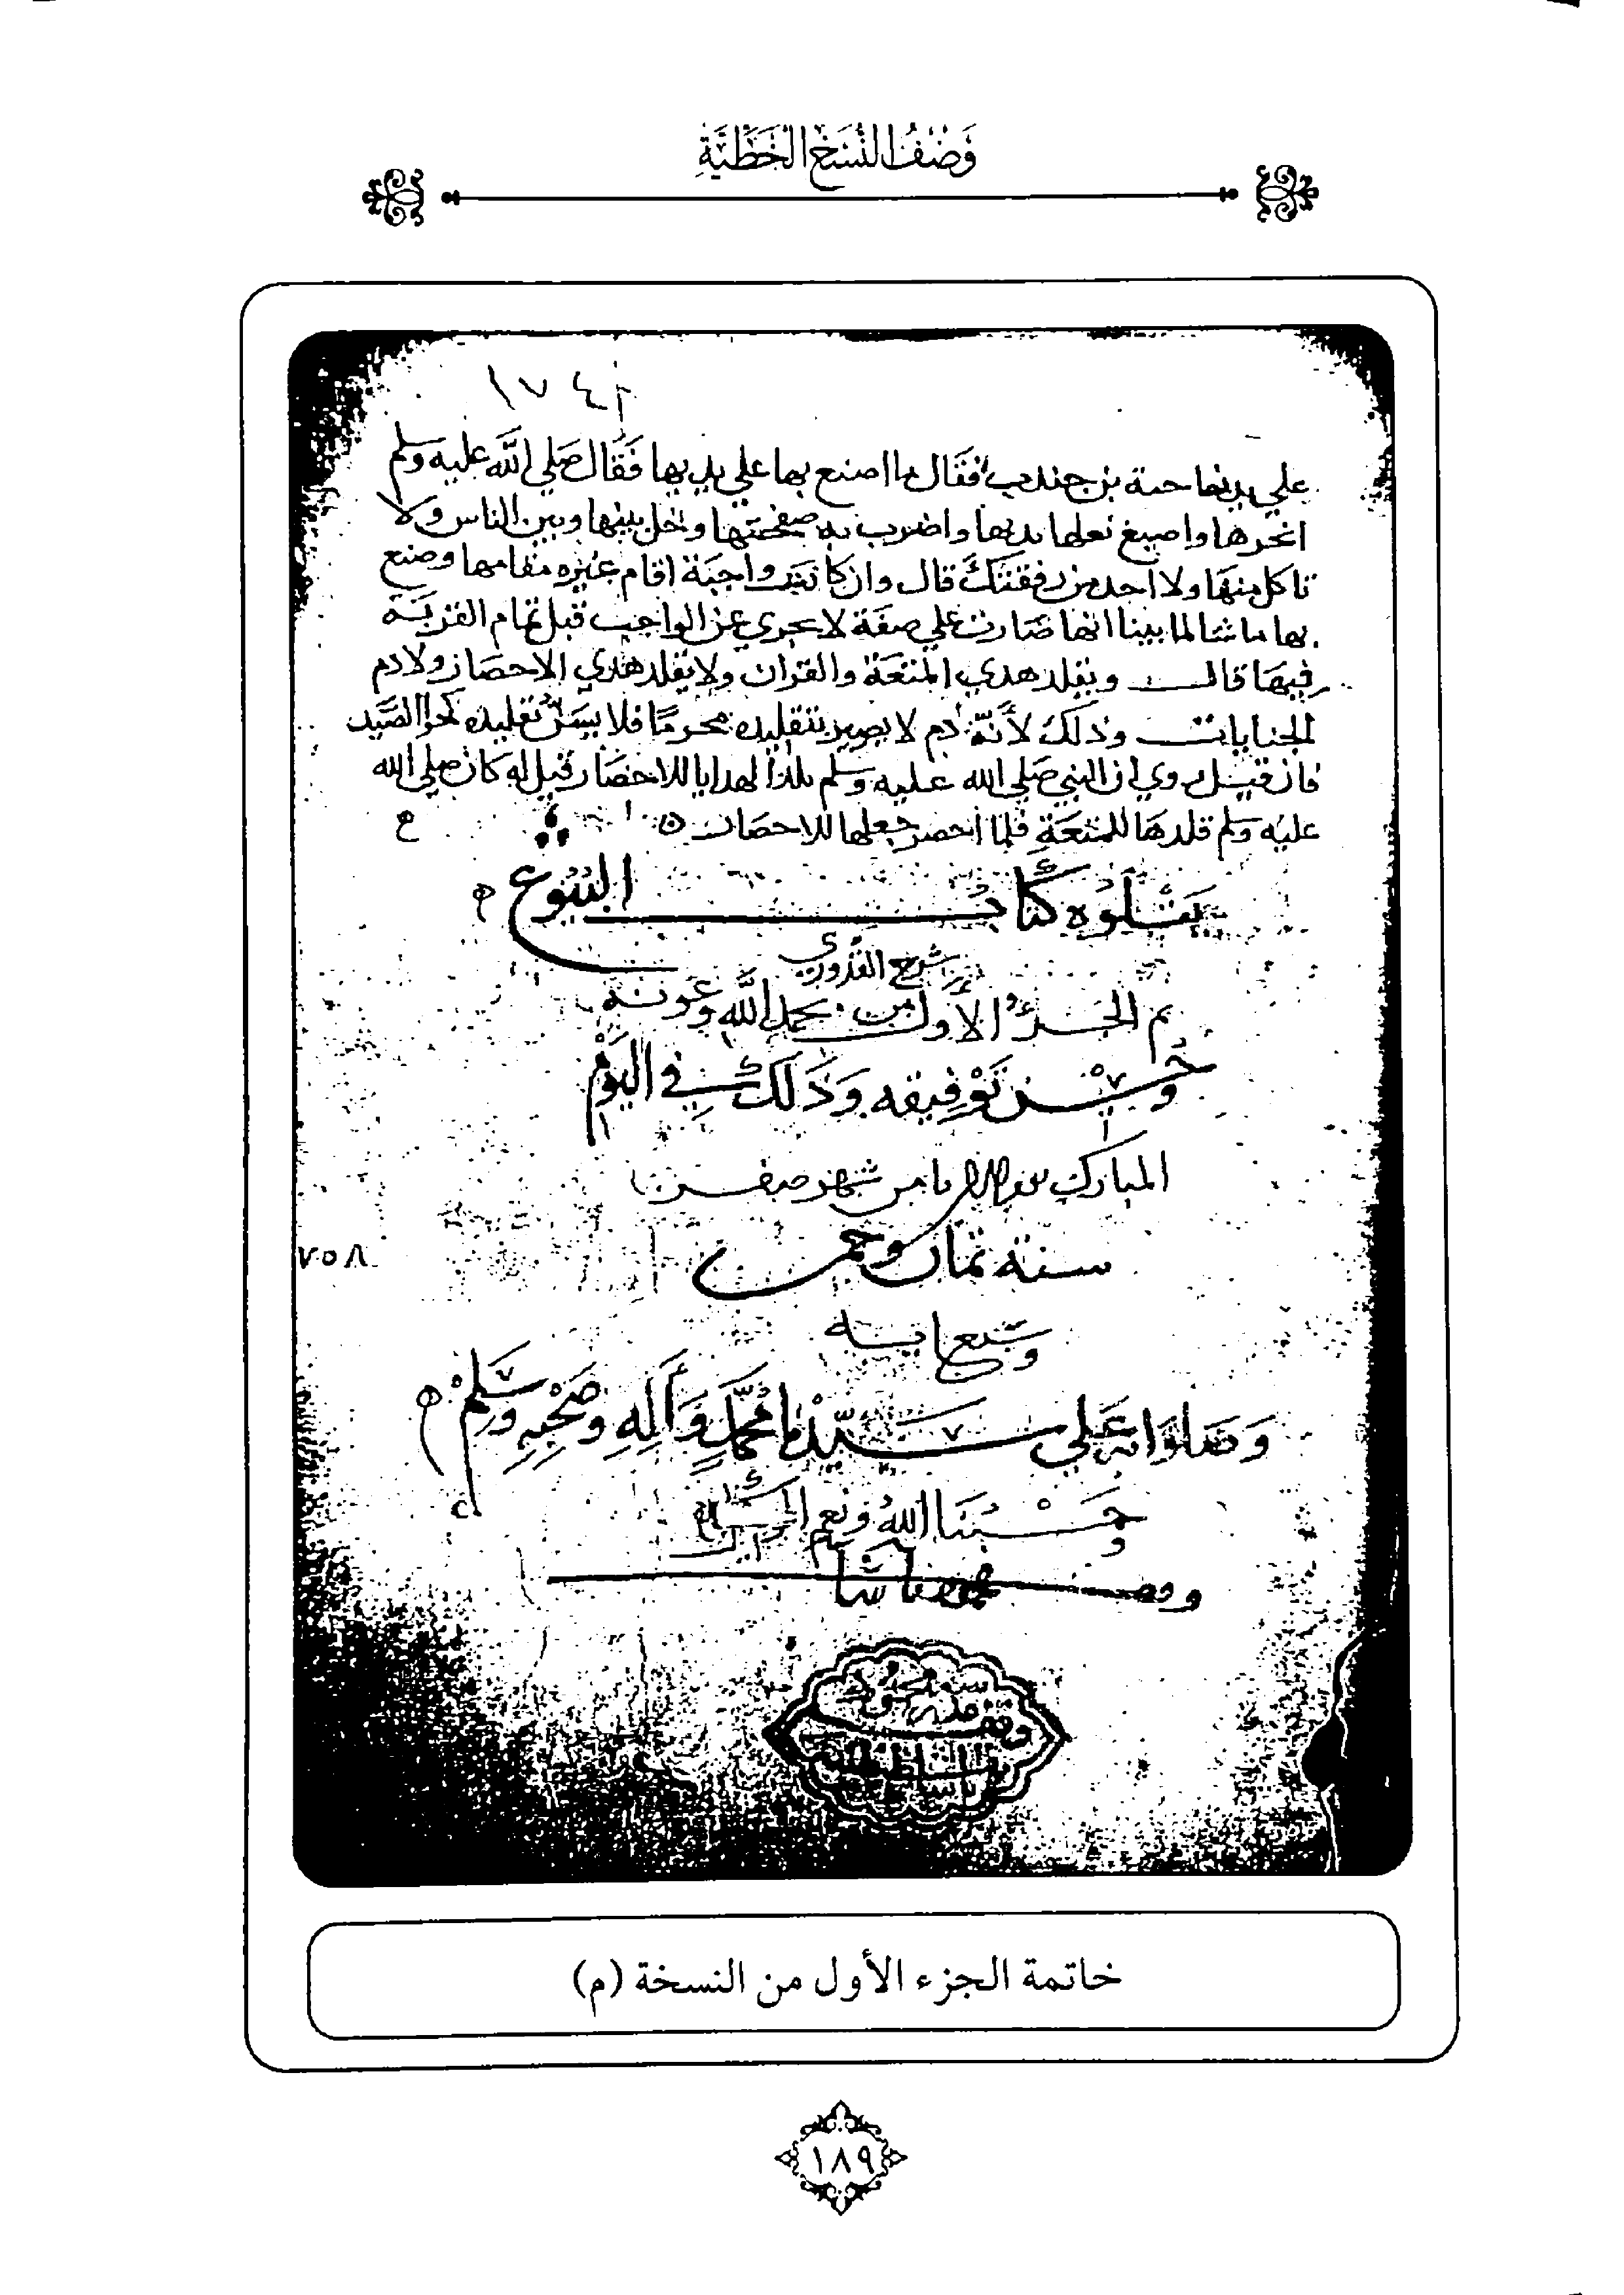 وَصْفُ النُّسَخِ الخَطِّيَّةِ
١٧٤
علي يد ناجية بن جندب فقال ما اصنع بها علي يديها فَقَال صَلي الله عليه وسلم
انحرها واصبغ نعلها بدمها واضرب به صفحتها وخل بينها وبين الناس ولا
تاكل منها ولا احد من رفقتك قال وان كانت واجبة اقام غيره مقامها وصنع
بها ما شا لما بينا انها صارت علي صفة لا يجزي عن الواجب قبل تمام القربة
فيها قال ويقلد هدي المتعة والقران ولا يقلد هدي الاحصار ولا دم
الجنايات وذلك لأنه دم لا يصير بتقليده محرمًا فلا يسن تقليده كجزا الصَّيد
فان قيل روي ان النبي صلي الله عليه وسلم قلد الهدايا للاحصار قيل له كان صلي الله
عليه وسلم قلدها للمتعة فلما احصر جعلها للاحصار
يتلوه كتاب البيوع
شرح القدوري
تم الجزء الأول من بحمد الله وعونه
وحسن توفيقه وذلك في اليوم
المبارك من شهر صفر
سنة ثمان وخمسين
٧٥٨
وسبع مايه
وَصلواته عَلي سَيّدنا محمّدٍ وَأله وصَحْبِهِ وَسَلم
وحسبنا الله ونعم الوكيل
وقف محمود باشا
خاتمة الجزء الأول من النسخة (م)
١٨٩